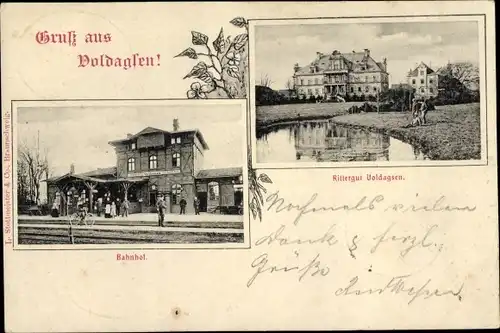 Gruß aus
Voldagsen!
L. Stottmeister & Co., Braunschweig.
Bahnhof.
Rittergut Voldagsen.
Nochmals vielen
Dank & herzl.
Grüße